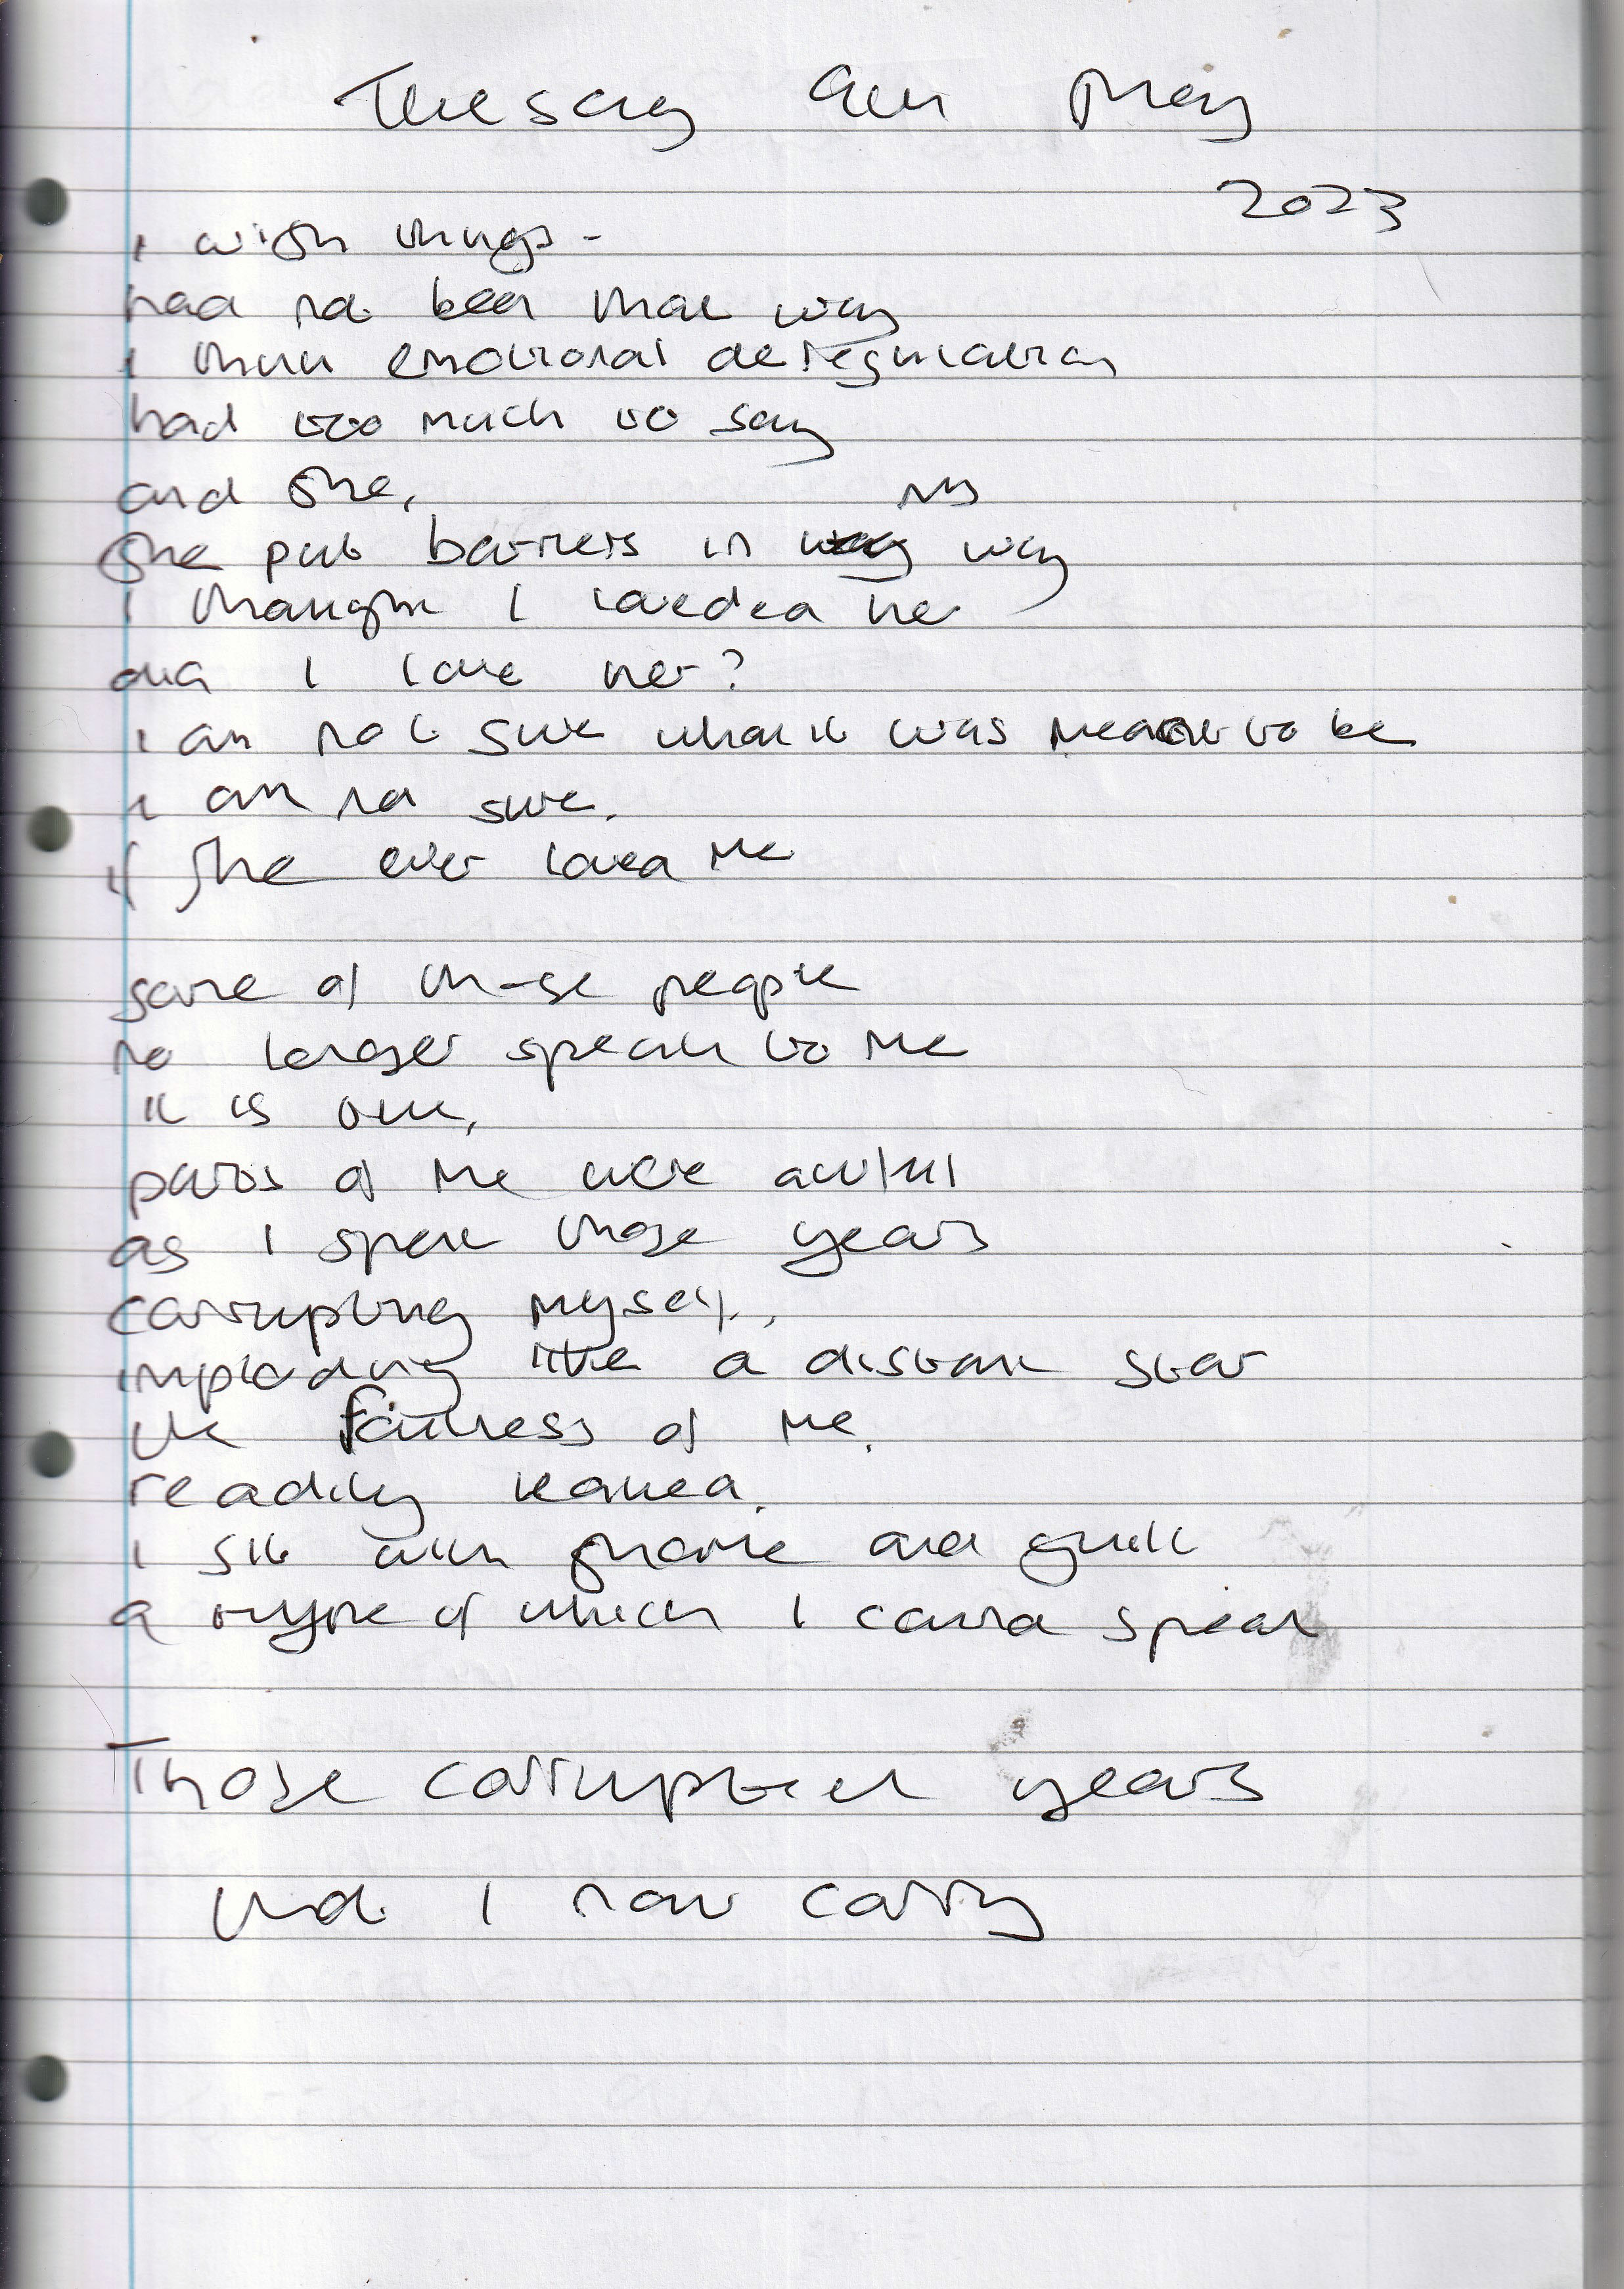 Tuesday 9th May
2023
I wish things -
had not been that way
I think emotional deregulation
had too much to say
and she,
my
she put barriers in way way
I thought I loved her
did I love her?
I am not sure what it was meant to be
I am not sure,
if she ever loved me
some of these people
no longer speak to me
it is true,
parts of me were awful
as I spent those years
corrupting myself,
imploding like a distant star
the of me,
readily leaked.
I sit with shame and guilt
a rhyme of which I cannot speak
Those corrupted years
that I now carry